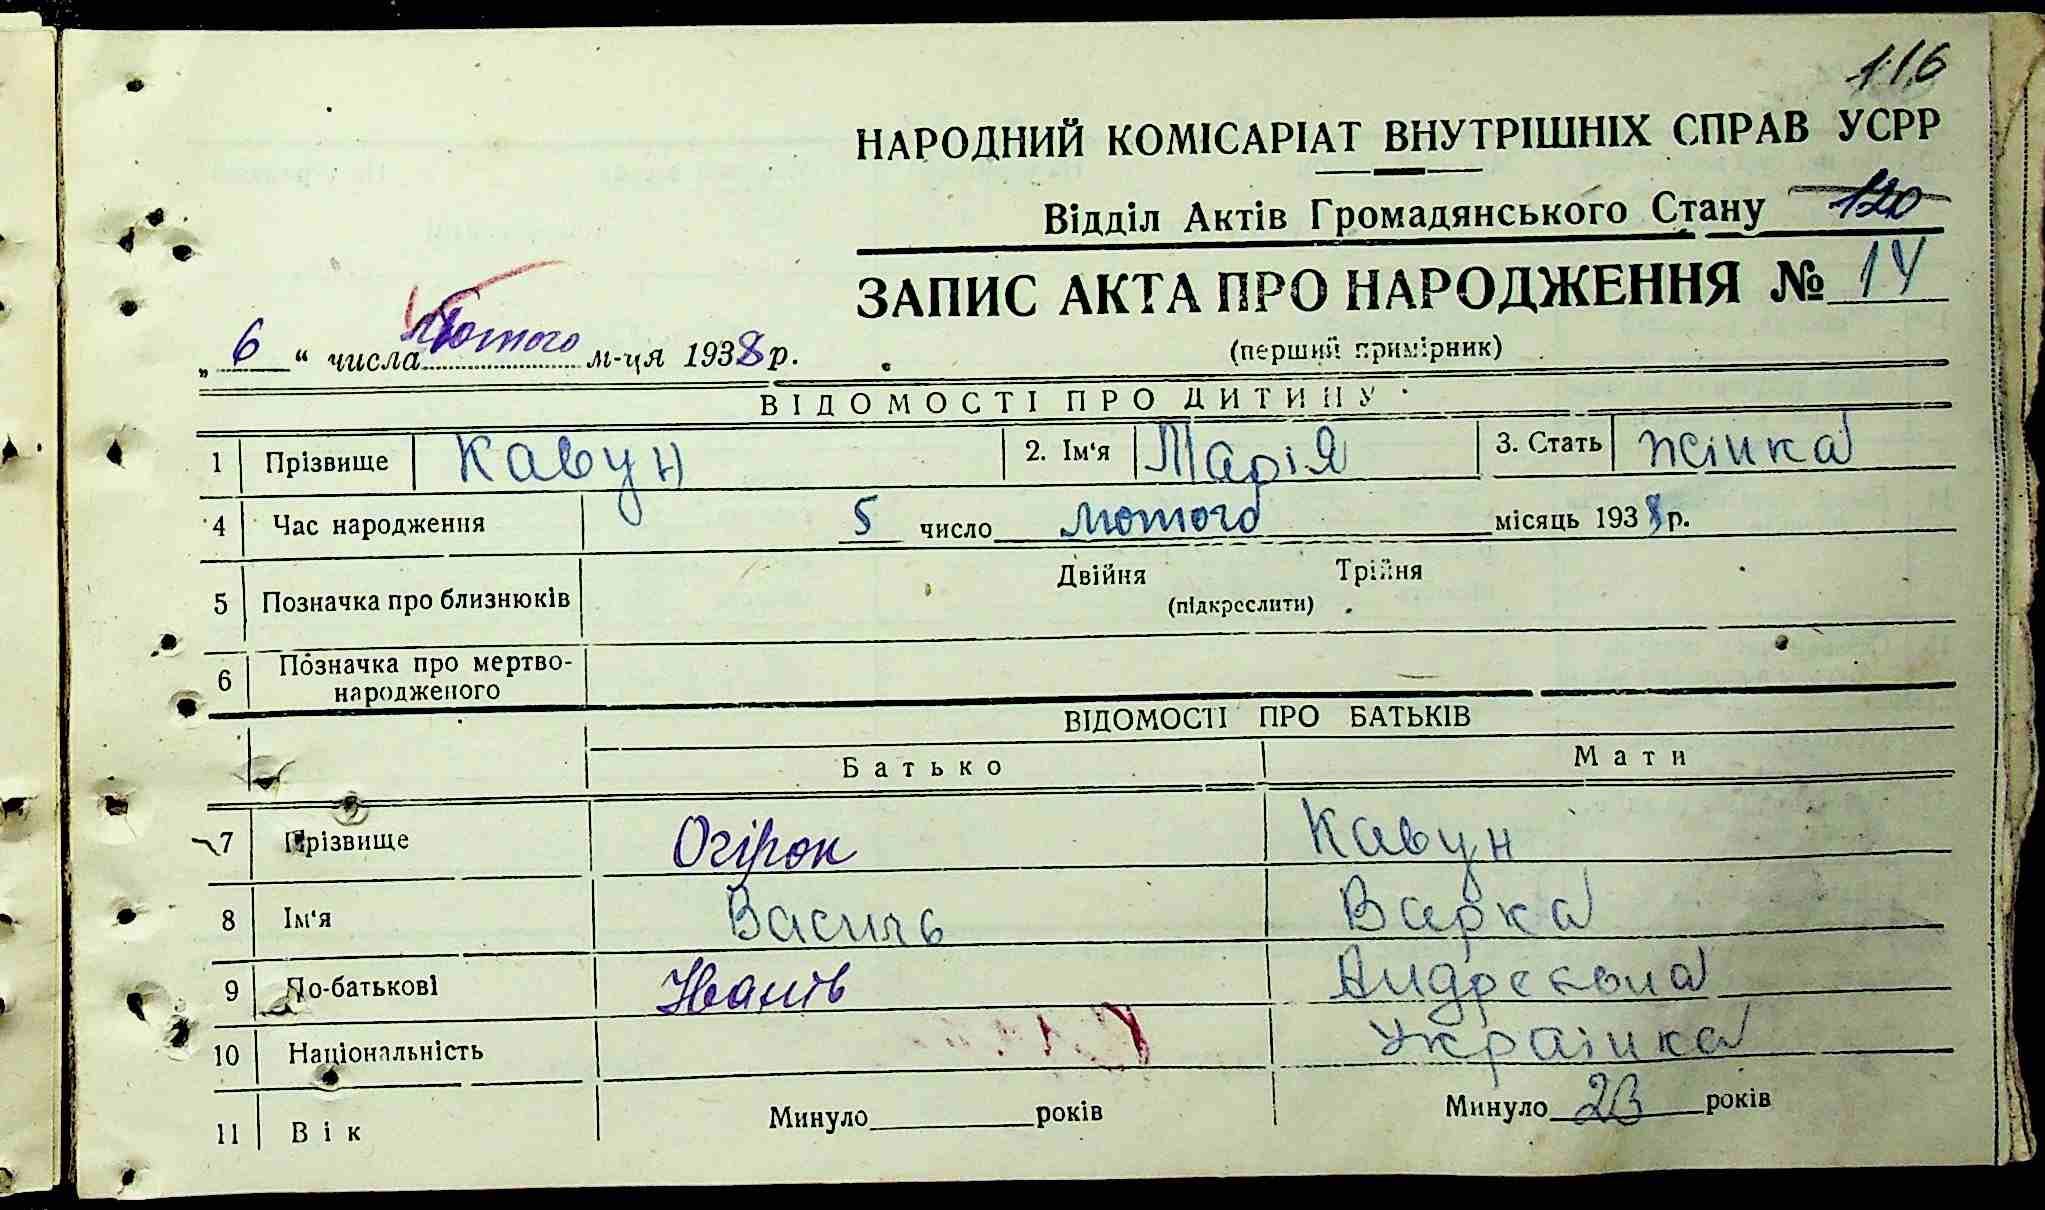 116
НАРОДНИЙ КОМІСАРІАТ ВНУТРІШНІХ СПРАВ УСРР
Відділ Актів Громадянського Стану 120
ЗАПИС АКТА ПРО НАРОДЖЕННЯ № 14
„ 6 “ числа лютого м-ця 1938 р.
(перший примірник)
ВІДОМОСТІ ПРО ДИТИНУ
1 Прізвище Кавун 2. Ім'я Марія 3. Стать жінка
4 Час народження 5 число лютого місяць 1938 р.
5 Позначка про близнюків Двійня Трійня
(підкреслити)
6 Позначка про мертво-
народженого
ВІДОМОСТІ ПРО БАТЬКІВ
Батько Мати
7 Прізвище Огірок Кавун
8 Ім'я Василь Варка
9 По-батькові Іванів Андреєвна
10 Національність Украінка
11 Вік Минуло років Минуло 23 років